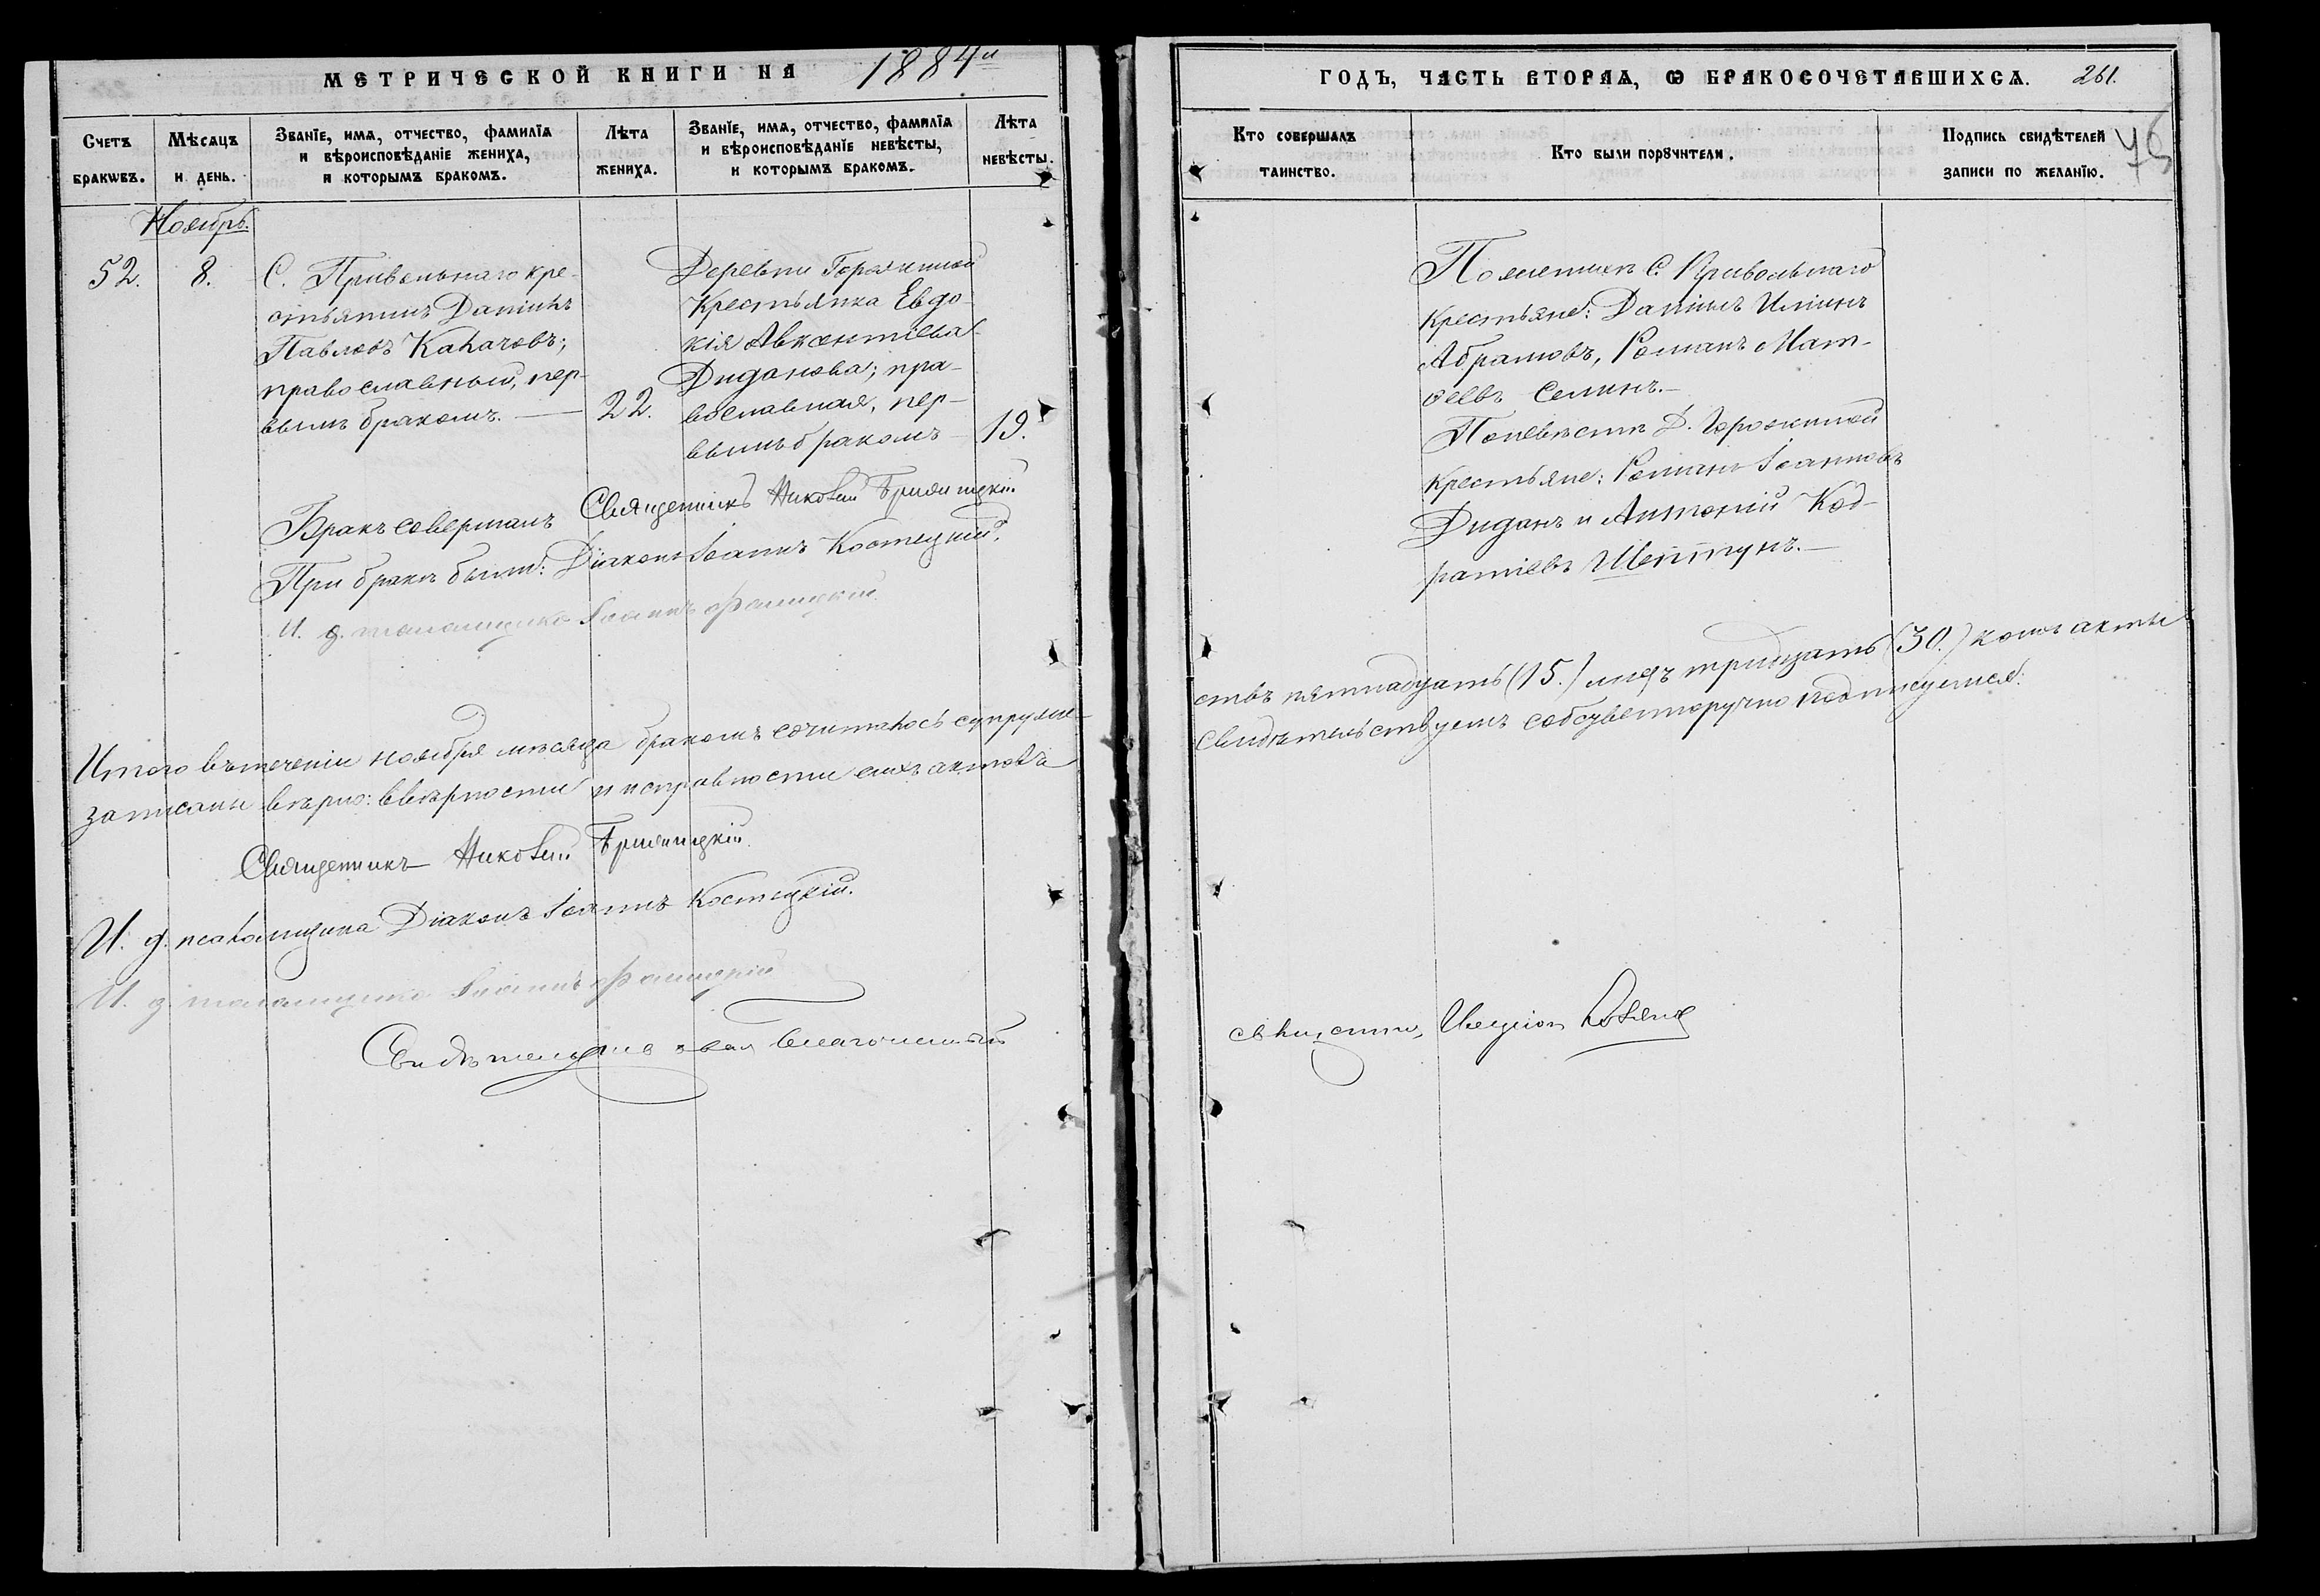 МЕТРИЧЕСКОЙ КНИГИ НА 1884й
Счетъ браковъ.
Мѣсяцъ и день.
Званїе, имя, отчество, фамилїя и вѣроисповѣданїе жениха, и которымъ бракомъ.
Лѣта жениха.
Званїе, имя, отчество, фамилїя и вѣроисповѣданїе невѣсты, и которымъ бракомъ.
Лѣта невѣсты.
Ноябрь.
52.
8.
С. Привольнаго кре-
стьянинъ Даніилъ
Павловъ Качаловъ;
православный, пер-
вымъ бракомъ. —
22.
Деревни Горожиной
Крестьянка Евдо-
кія Авксентіева
Диданова; пра-
вославная, пер-
вымъ бракомъ —
19.
Бракъ совершалъ Священникъ Николай
При бракѣ были: Діаконъ Іоаннъ Костецкій.
И. д. псаломщика Іоаннъ
Итого въ теченіи ноября мѣсяца бракомъ сочиталось супруже-
записаны вѣрно: в вѣрности и исправности сихъ актовъ
Священникъ Николай
И. д. псаломщика Діаконъ Іоаннъ Костецкій.
И. д. псаломщика Іоаннъ
Благочинный
ГОДЪ, ЧАСТЬ ВТОРАЯ, Ѡ БРАКОСОЧЕТАВШИХСЯ. 261.
76
Кто совершалъ таинство.
Кто были порꙋчители.
Подпись свидѣтелей записи по желанїю.
По женихѣ С. Привольнаго
Крестьяне: Даніилъ Иліинъ
Абрамовъ, Романъ Мат-
ѳеевъ Селинъ. —
По невѣстѣ Д. Горожиной
Крестьяне: Романъ Іоанновъ
Диданъ и Антоній Код-
ратіевъ Шептунъ. —
ствъ пятнадцать (15.) лицъ тридцать (30.) коихъ акты
свидѣтельствуемъ собственноручно подписуемся: